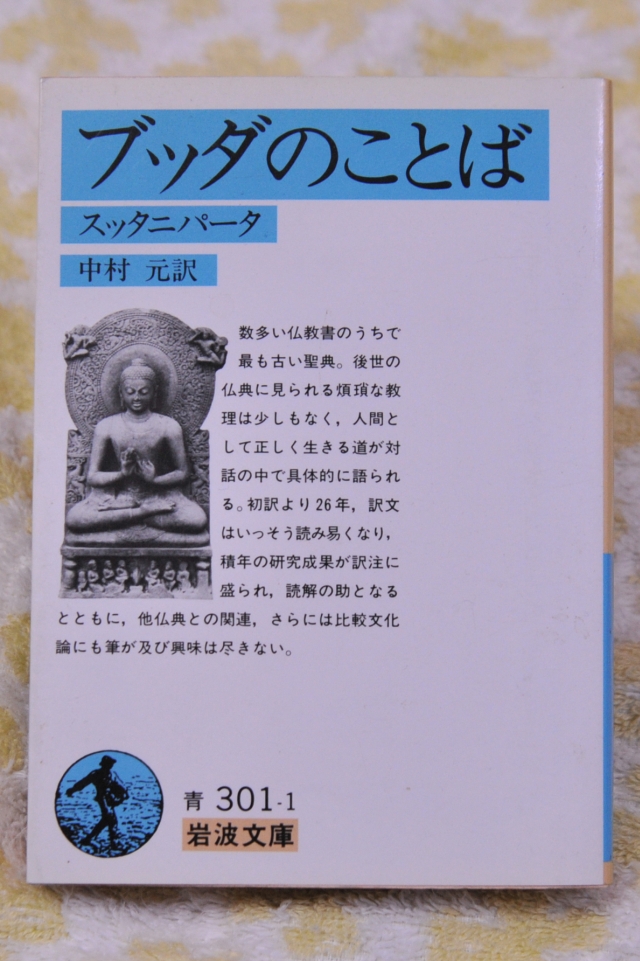 ブッダのことば
スッタニパータ
中村 元訳
数多い仏教書のうちで
最も古い聖典。後世の
仏典に見られる煩瑣な教
理は少しもなく，人間と
して正しく生きる道が対
話の中で具体的に語られ
る。初訳より26年，訳文
はいっそう読み易くなり，
積年の研究成果が訳注に
盛られ，読解の助となる
とともに，他仏典との関連，さらには比較文化
論にも筆が及び興味は尽きない。
青 301-1
岩波文庫